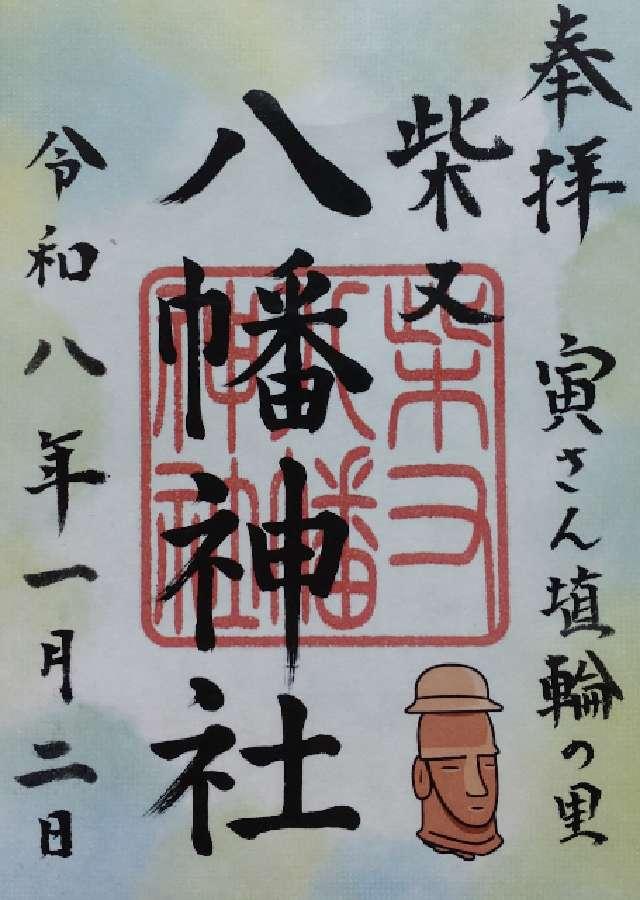 奉拝
寅さん埴輪の里
柴又
八幡神社
柴又
八幡
神社
令和八年一月二日